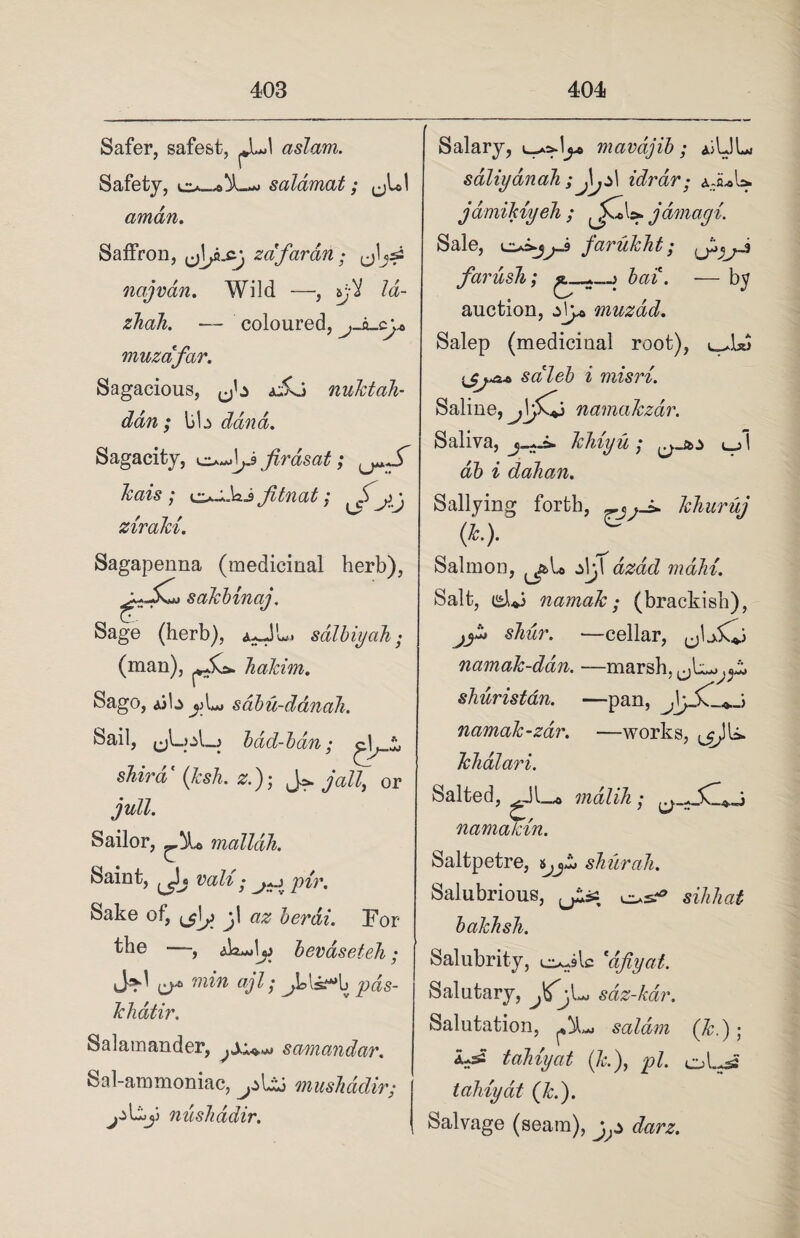 403
404
Safer, safest, اسلم aslam.
Safety, سلامت salámat; امان
amán.
Saffron, زعفران za'farán; نجوان
najván. Wild —, لاژه lá-
zhah. — coloured, مزعفر
muza'far.
Sagacious, نکته دان nuktah-
dán; دانا dáná.
Sagacity, فراست firásat; کیس
kais; فطنت fitnat; زیرکی
zírakí.
Sagapenna (medicinal herb),
سکبینج sakbínaj.
Sage (herb), سالبیه sálbiyah;
(man), حکیم hakím.
Sago, سابو دانه sábú-dánah.
Sail, بادبان bád-bán; شراع
shirá' (ksh. z.); جل jall, or
jull.
Sailor, ملاح malláh.
Saint, ولی valí; پیر pír.
Sake of, از برای az berái. For
the —, بواسطه beváseteh;
من اجل min ajl; پاسخاطر pás-
khátir.
Salamander, سمندر samandar.
Sal-ammoniac, نشادر mushádir;
نوشادر núshádir.
Salary, مواجب mavájib; سالیانه
sáliyánah; ادرار idrár; جامقیه
jámikíyeh; جامگی jámagí.
Sale, فروخت farúkht; فروش
farúsh; بیع bai'. — by
auction, مزاد muzád.
Salep (medicinal root), ثعلب
مصری sa'leb i misrí.
Saline, نمکزار namakzár.
Saliva, خیو khíyú; آب دهن
áb i dahan.
Sallying forth, خروج khurúj
(k.).
Salmon, آزاد ماهی ázád máhí.
Salt, نمك namak; (brackish),
شور shúr. —cellar, نمکدان
namak-dán. —marsh, شورستان
shúristán. —pan, نمکزار
namak-zár. —works, خالری
khálari.
Salted, مالح málih; نمکین
namakín.
Saltpetre, شوره shúrah.
Salubrious, صحت بخش sihhat
bakhsh.
Salubrity, عافیت 'áfiyat.
Salutary, سازکار sáz-kár.
Salutation, سلام salám (k.);
تحیة tahíyat (k.), pl. تحیات
tahíyát (k.).
Salvage (seam), درز darz.